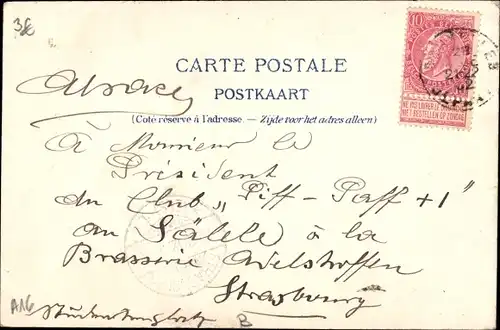 38
Alsace
CARTE POSTALE
POSTKAART
(Côté réservé à l'adresse. — Zijde voor het adres alleen)
10
NE PAS LIVRER LE DIMANCHE
NIET BESTELLEN OP ZONDAG
à Monsieur le
Président
du Club „Piff-Paff +1"
au Sälele à la
Brasserie Adelshoffen
Strasbourg
A16